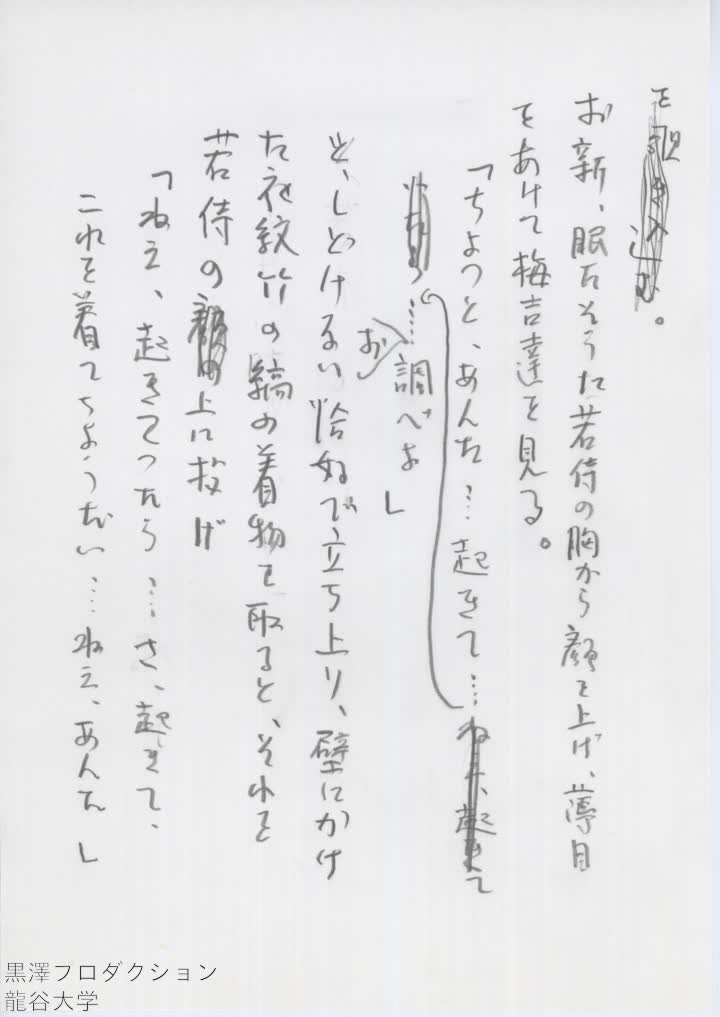 を覗き込む。
お新、眠たそうな若侍の胸から顔を上げ、薄目
をあけて梅吉達を見る。
「ちょっと、あんた…起きて…ねえ、起きて
…お調べよ」
と、しどけない恰好で立ち上り、壁にかけ
た衣紋竹の縞の着物を取ると、それを
若侍の顔の上に投げ
「ねえ、起きてったら…さ、起きて、
これを着てちょうだい…ねえ、あんた」
黒澤プロダクション
龍谷大学